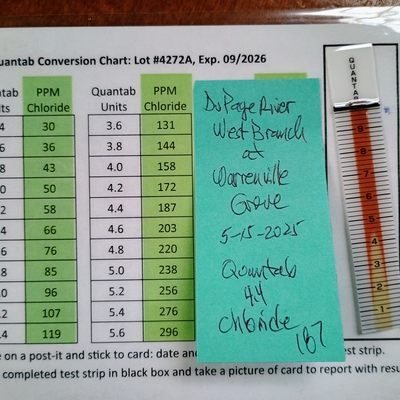 Quantab Conversion Chart: Lot #4272A, Exp. 09/2026
PPM Chloride
Quantab Units
PPM Chloride
30
36
43
50
58
66
76
85
96
107
119
3.6 131
3.8 144
4.0 158
4.2 172
4.4 187
4.6 203
4.8 220
5.0 238
5.2 256
5.4 276
5.6 296
DuPage River
West Branch
at
Warrenville
Grove
5-15-2025
Quantab
4.4
Chloride
187
QUANTAB
9
8
7
6
5
4
3
2
1
e on a post-it and stick to card: date and
est strip.
completed test strip in black box and take a picture of card to report with resu